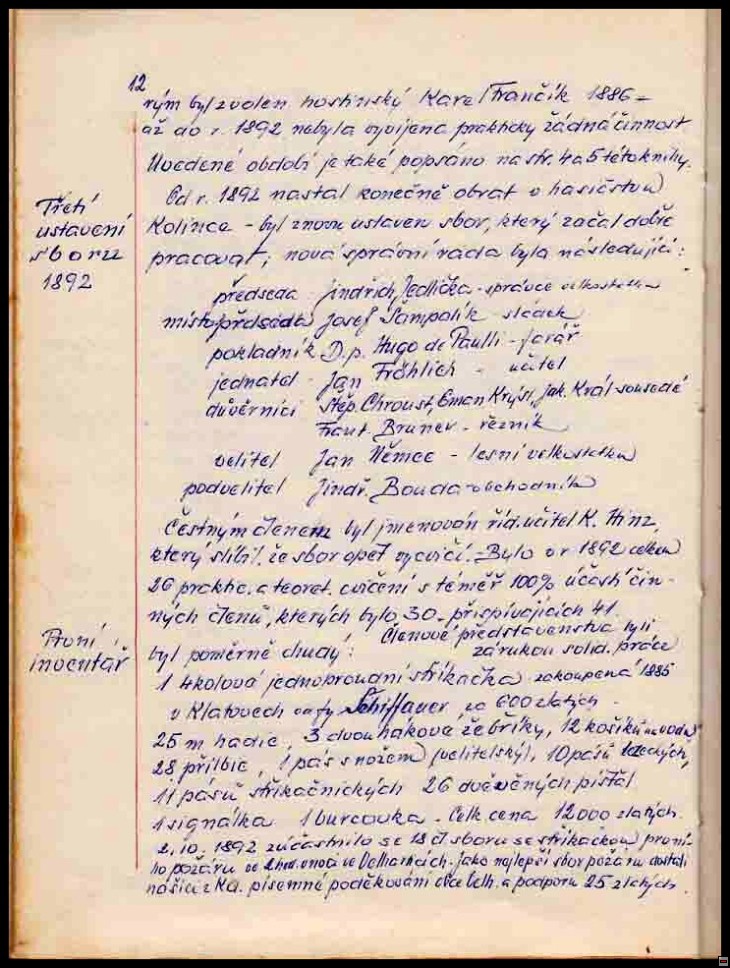 12
rým byl zvolen hostinský Karel Frančík 1886 -
až do r. 1892 nebyla vyvíjena prakticky žádná činnost
Uvedené období je také popsáno na str. 4 a 5 této knihy.
Od r. 1892 nastal konečně obrat v hasičstvu
Třetí
ustavení
sboru
1892
Kolince - byl znovu ustaven sbor, který začal dobře
pracovat, nová správní rada byla následující:
předseda - Jindřich Jedlička - správce velkostatku
místopředseda Josef Šampalík sládek
pokladník D.p. Hugo de Paulli - farář
jednatel - Jan Fröhlich - učitel
důvěrníci Štěp. Chroust, Eman Krýsl, Jak. Král sousedé
Frant. Bruner - řezník
velitel Jan Němec - lesní velkostatku
podvelitel Jindř. Bouda - obchodník
Čestným členem byl jmenován říd. učitel K. Hinz,
který slíbil, že sbor opět vycvičí. - Bylo v r 1892 celkem
26 praktic. a teoret. cvičení s téměř 100% účastí čin-
ných členů, kterých bylo 30 - přispívajících 41.
Členové představenstva byli
zárukou solid. práce
První
inventář
byl poměrně chudý:
1 4kolová jednoproudní stříkačka zakoupená 1885
v Klatovech od fy Schiffauer za 600 zlatých
25 m hadic, 3 dvouhákové žebříky, 12 košíků na vodu
28 přilbic, 1 pás s nožem (velitelský), 10 pásů lezeckých,
11 pásů stříkačnických 26 dvěvěných píšťal
1 signálka 1 burcovka. Celk. cena 12000 zlatých.
2. 10. 1892 zúčastnilo se 18 čl. sboru se stříkačkou prvni-
ho požáru ve 2 hod. v noci ve Velharticích. jako nejlepší sbor požáru dostali
našici z Kol. písemné poděkování obce Velh. a podporu 25 zlatých.